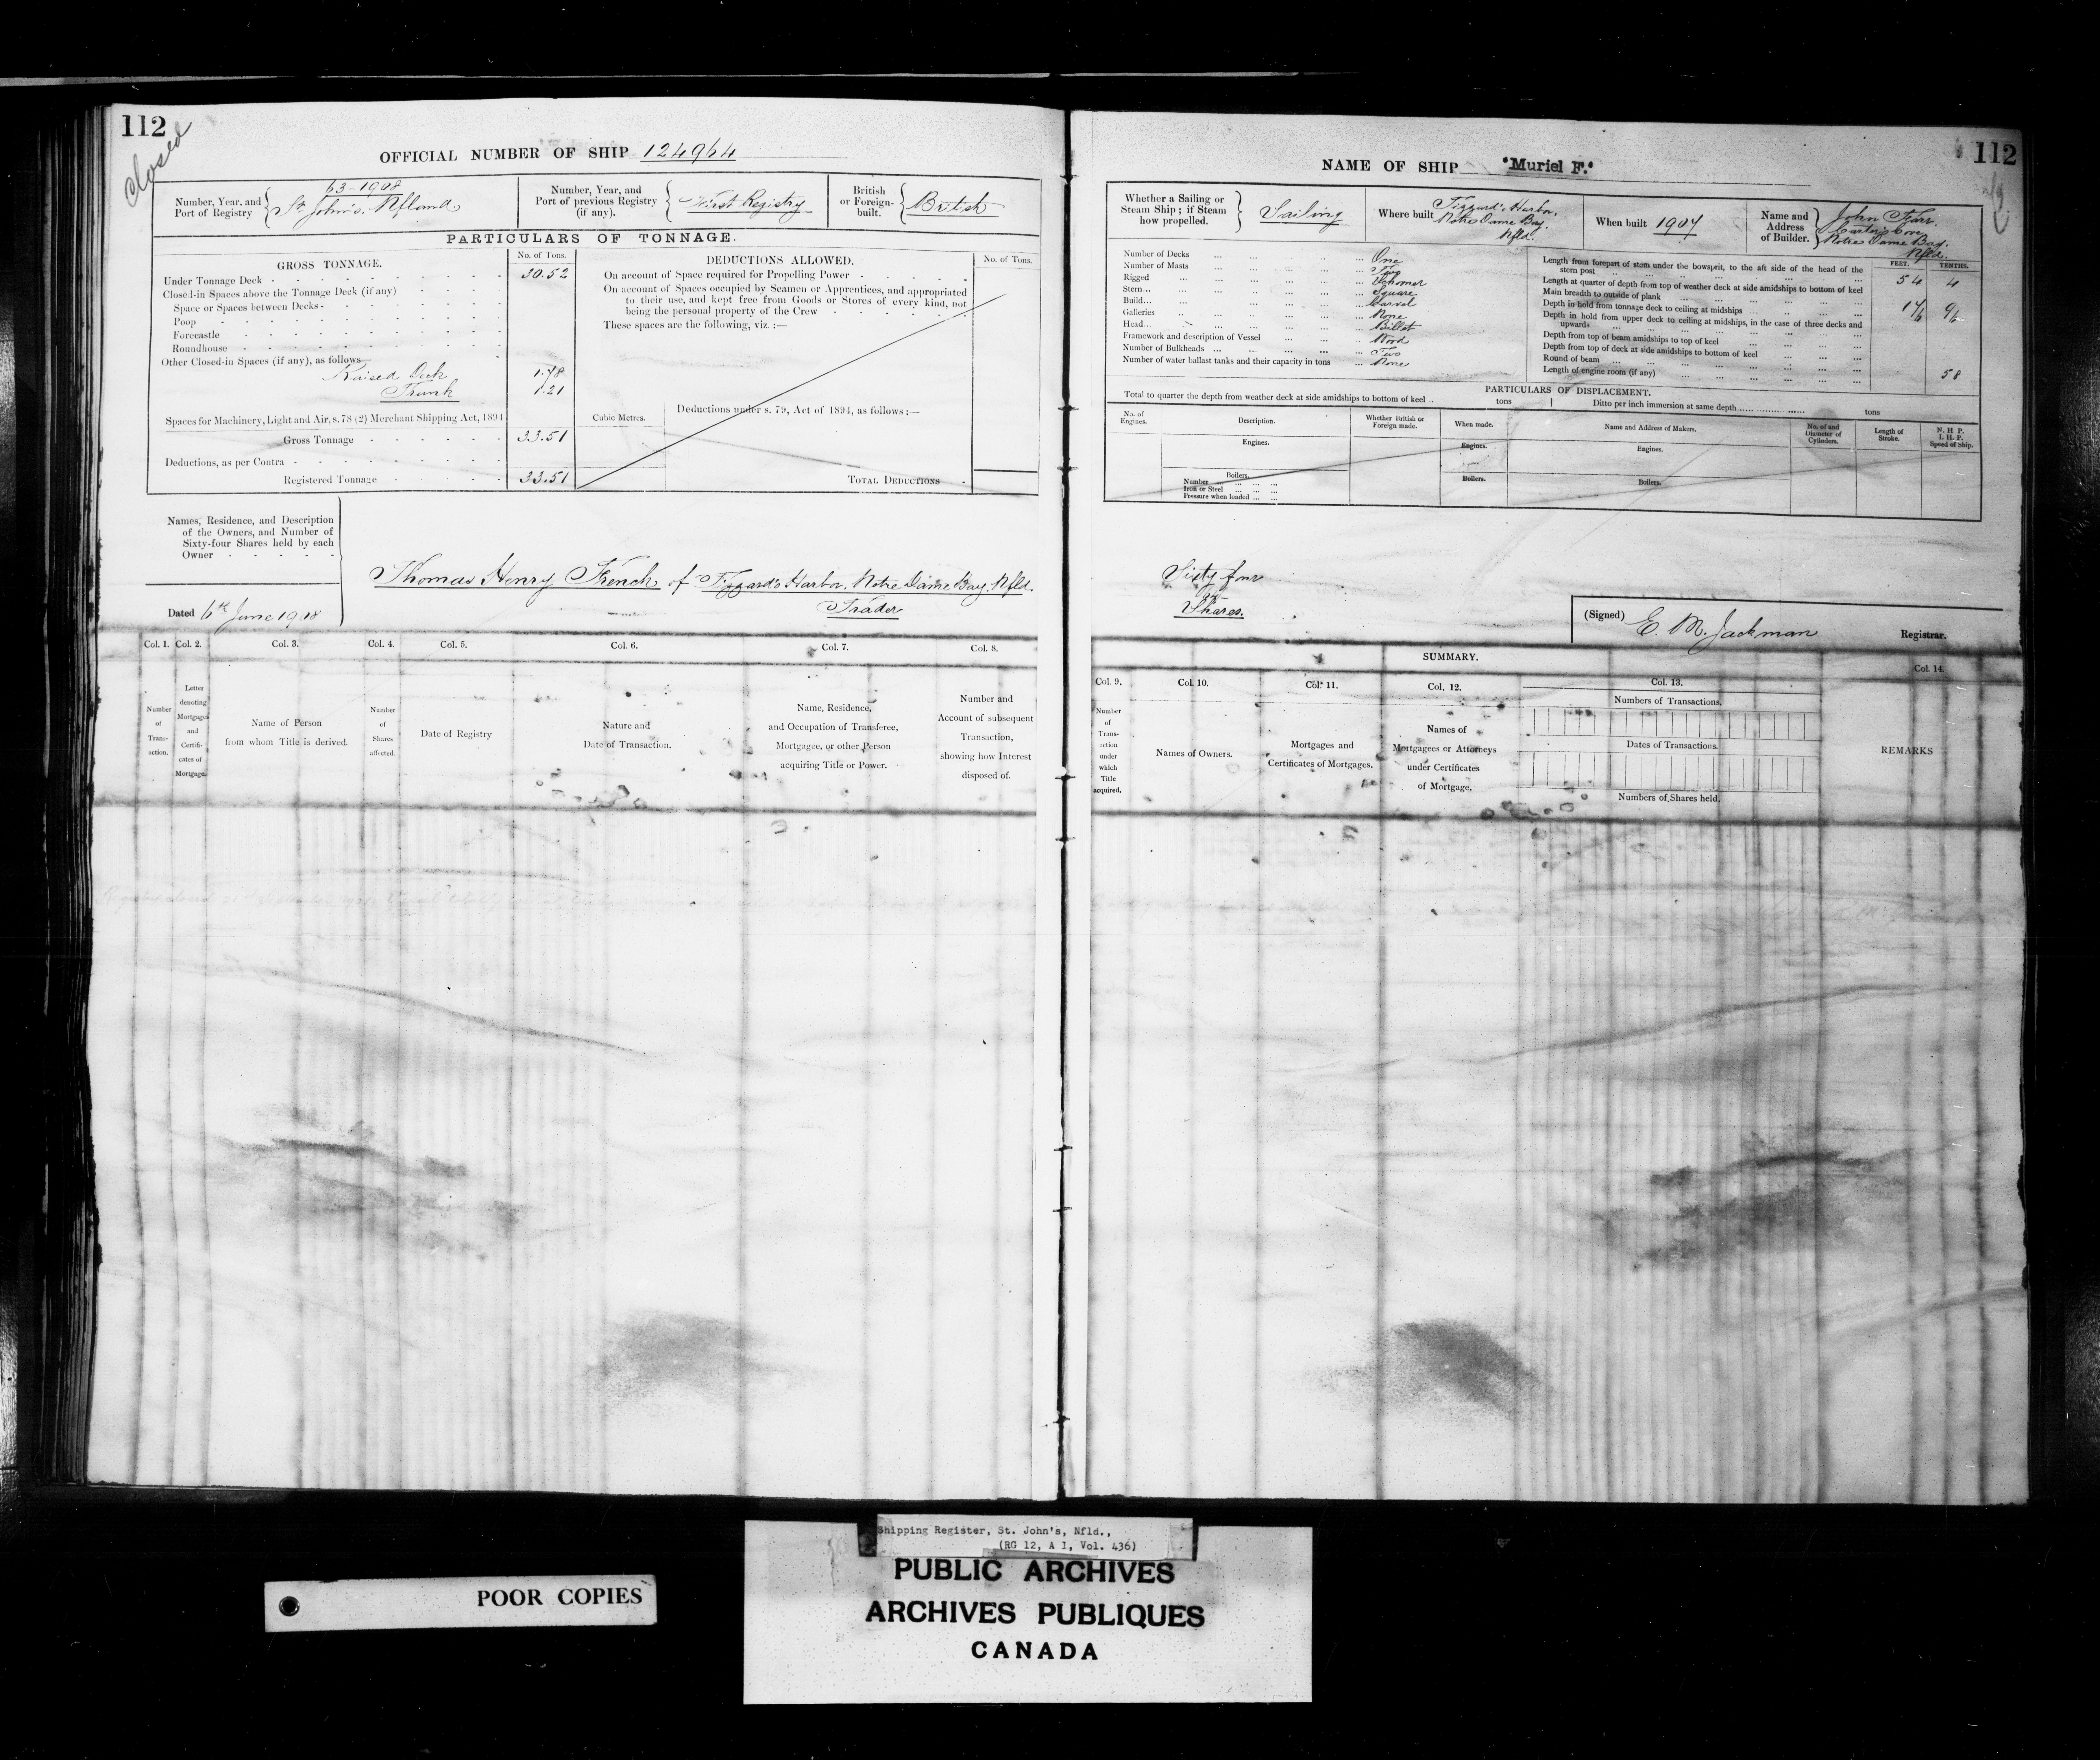 112
Closed
OFFICIAL NUMBER OF SHIP 124964
Number, Year, and Port of Registry
63-1908
St. John's. Nfland
Number, Year, and Port of previous Registry (if any).
First Registry
British or Foreign-built.
British
PARTICULARS OF TONNAGE.
GROSS TONNAGE.
No. of Tons.
DEDUCTIONS ALLOWED.
No. of Tons.
Under Tonnage Deck 30.52
Closed-in Spaces above the Tonnage Deck (if any)
Space or Spaces between Decks
Poop
Forecastle
Roundhouse
Other Closed-in Spaces (if any), as follows—
Raised Deck 1.78
Trunk 1.21
Spaces for Machinery, Light and Air, s. 78 (2) Merchant Shipping Act, 1894
Gross Tonnage 33.51
Deductions, as per Contra
Registered Tonnage 33.51
On account of Space required for Propelling Power
On account of Spaces occupied by Seamen or Apprentices, and appropriated
to their use, and kept free from Goods or Stores of every kind, not
being the personal property of the Crew
These spaces are the following, viz. :—
Cubic Metres.
Deductions under s. 79, Act of 1894, as follows :—
TOTAL DEDUCTIONS
Names, Residence, and Description
of the Owners, and Number of
Sixty-four Shares held by each
Owner
Thomas Henry French of Tizzard's Harbor. Notre Dame Bay. Nfld.
Trader
Dated 6th June 1908
Col. 1.
Col. 2.
Col. 3.
Col. 4.
Col. 5.
Col. 6.
Col. 7.
Col. 8.
Number of Transaction.
Letter denoting Mortgages and Certificates of Mortgage.
Name of Person
from whom Title is derived.
Number of Shares affected.
Date of Registry
Nature and
Date of Transaction.
Name, Residence,
and Occupation of Transferee,
Mortgagee, or other Person
acquiring Title or Power.
Number and
Account of subsequent
Transaction,
showing how Interest
disposed of.
112
NAME OF SHIP "Muriel F."
Whether a Sailing or
Steam Ship ; if Steam
how propelled.
Sailing
Where built
Tizzard's Harbor.
Notre Dame Bay.
Nfld.
When built 1907
Name and
Address
of Builder.
John
Cove
Notre Dame Bay.
Nfld.
Number of Decks One
Number of Masts Two
Rigged Schooner
Stern Square
Build Carvel
Galleries None
Head Billet
Framework and description of Vessel Wood
Number of Bulkheads Two
Number of water ballast tanks and their capacity in tons None
FEET.
TENTHS.
Length from forepart of stem under the bowsprit, to the aft side of the head of the
stern post 54 4
Length at quarter of depth from top of weather deck at side amidships to bottom of keel
Main breadth to outside of plank
Depth in hold from tonnage deck to ceiling at midships
Depth in hold from upper deck to ceiling at midships, in the case of three decks and
upwards
Depth from top of beam amidships to top of keel
Depth from top of deck at side amidships to bottom of keel
Round of beam 58
Length of engine room (if any)
PARTICULARS OF DISPLACEMENT.
Total to quarter the depth from weather deck at side amidships to bottom of keel tons
Ditto per inch immersion at same depth tons
No. of Engines.
Description.
Whether British or Foreign made.
When made.
Name and Address of Makers.
No. of and Diameter of Cylinders.
Length of Stroke.
N. H. P.
I. H. P.
Speed of Ship.
Engines.
Engines.
Engines.
Boilers.
Number
Iron or Steel
Pressure when loaded
Boilers.
Boilers.
Sixty four
Shares.
(Signed) E. M. Jackman
Registrar.
SUMMARY.
Col. 9.
Col. 10.
Col. 11.
Col. 12.
Col. 13.
Col. 14.
Number of Transaction under which Title acquired.
Names of Owners.
Mortgages and
Certificates of Mortgages.
Names of
Mortgagees or Attorneys
under Certificates
of Mortgage.
Numbers of Transactions.
Dates of Transactions.
Numbers of Shares held.
REMARKS
Shipping Register, St. John's, Nfld.,
(RG 12, A 1, Vol. 436)
PUBLIC ARCHIVES
ARCHIVES PUBLIQUES
CANADA
POOR COPIES